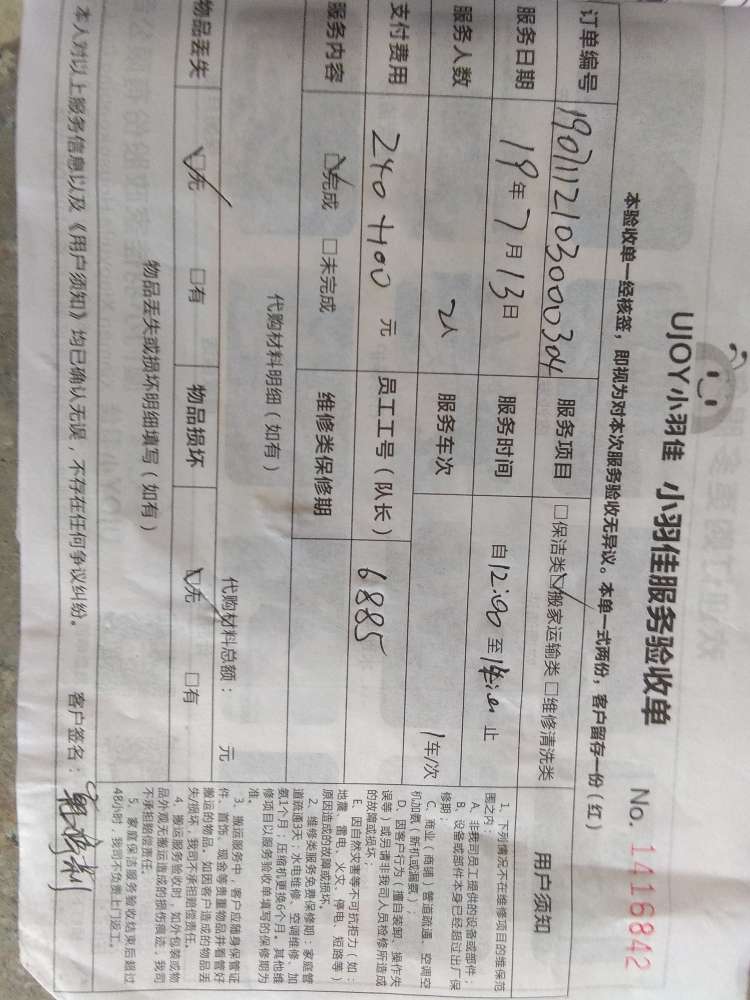 UJOY小羽佳 小羽佳服务验收单
No. 1416842
本验收单一经核签，即视为对本次服务验收无异议。本单一式两份，客户留存一份（红）
订单编号 1907112103000304 服务项目 □保洁类 ☑搬家运输类 □维修清洗类
服务日期 19年7月13日 服务时间 自12:00至 止
服务人数 2人 服务车次 1车/次
支付费用 240+100 元 员工工号（队长） 6885
服务内容 ☑完成 □未完成 维修类保修期
代购材料明细（如有）
代购材料总额： 元
物品丢失 ☑无 □有 物品损坏 ☑无 □有
物品丢失或损坏明细填写（如有）
本人对以上服务信息以及《用户须知》均已确认无误，不存在任何争议纠纷。 客户签名：
用户须知
1、下列情况不在维修项目的维保范
围之内：
A、非我司员工提供的设备或部件；
B、设备或部件本身已经超过出厂保
修期；
C、商业（商铺）管道疏通、空调空
机加载（新机或漏载）；
D、因客户行为（擅自装卸、操作失
误等）或另请非我司人员检修所造成
的故障或损坏；
E、因自然灾害等不可抗拒力（如：
地震、雷电、火灾、停电、短路等）
原因造成的故障或损坏。
2、维修类服务免费保修期：家庭管
道疏通3天；水电维修、空调维修、加
氨1个月；压缩机更换6个月。其他维
修项目以服务验收单填写的保修期为
准。
3、搬运服务中，客户应随身保管证
件、首饰、现金等贵重物品并看管好
搬运的物品。如因客户造成的物品丢
失/损坏，我司不承担赔偿责任。
4、搬运服务验收时，如外包装或物
品外观无搬运造成的损伤痕迹，我司
不承担赔偿责任。
5、家庭保洁服务验收结束后超过
48小时，我司不负责上门返工。